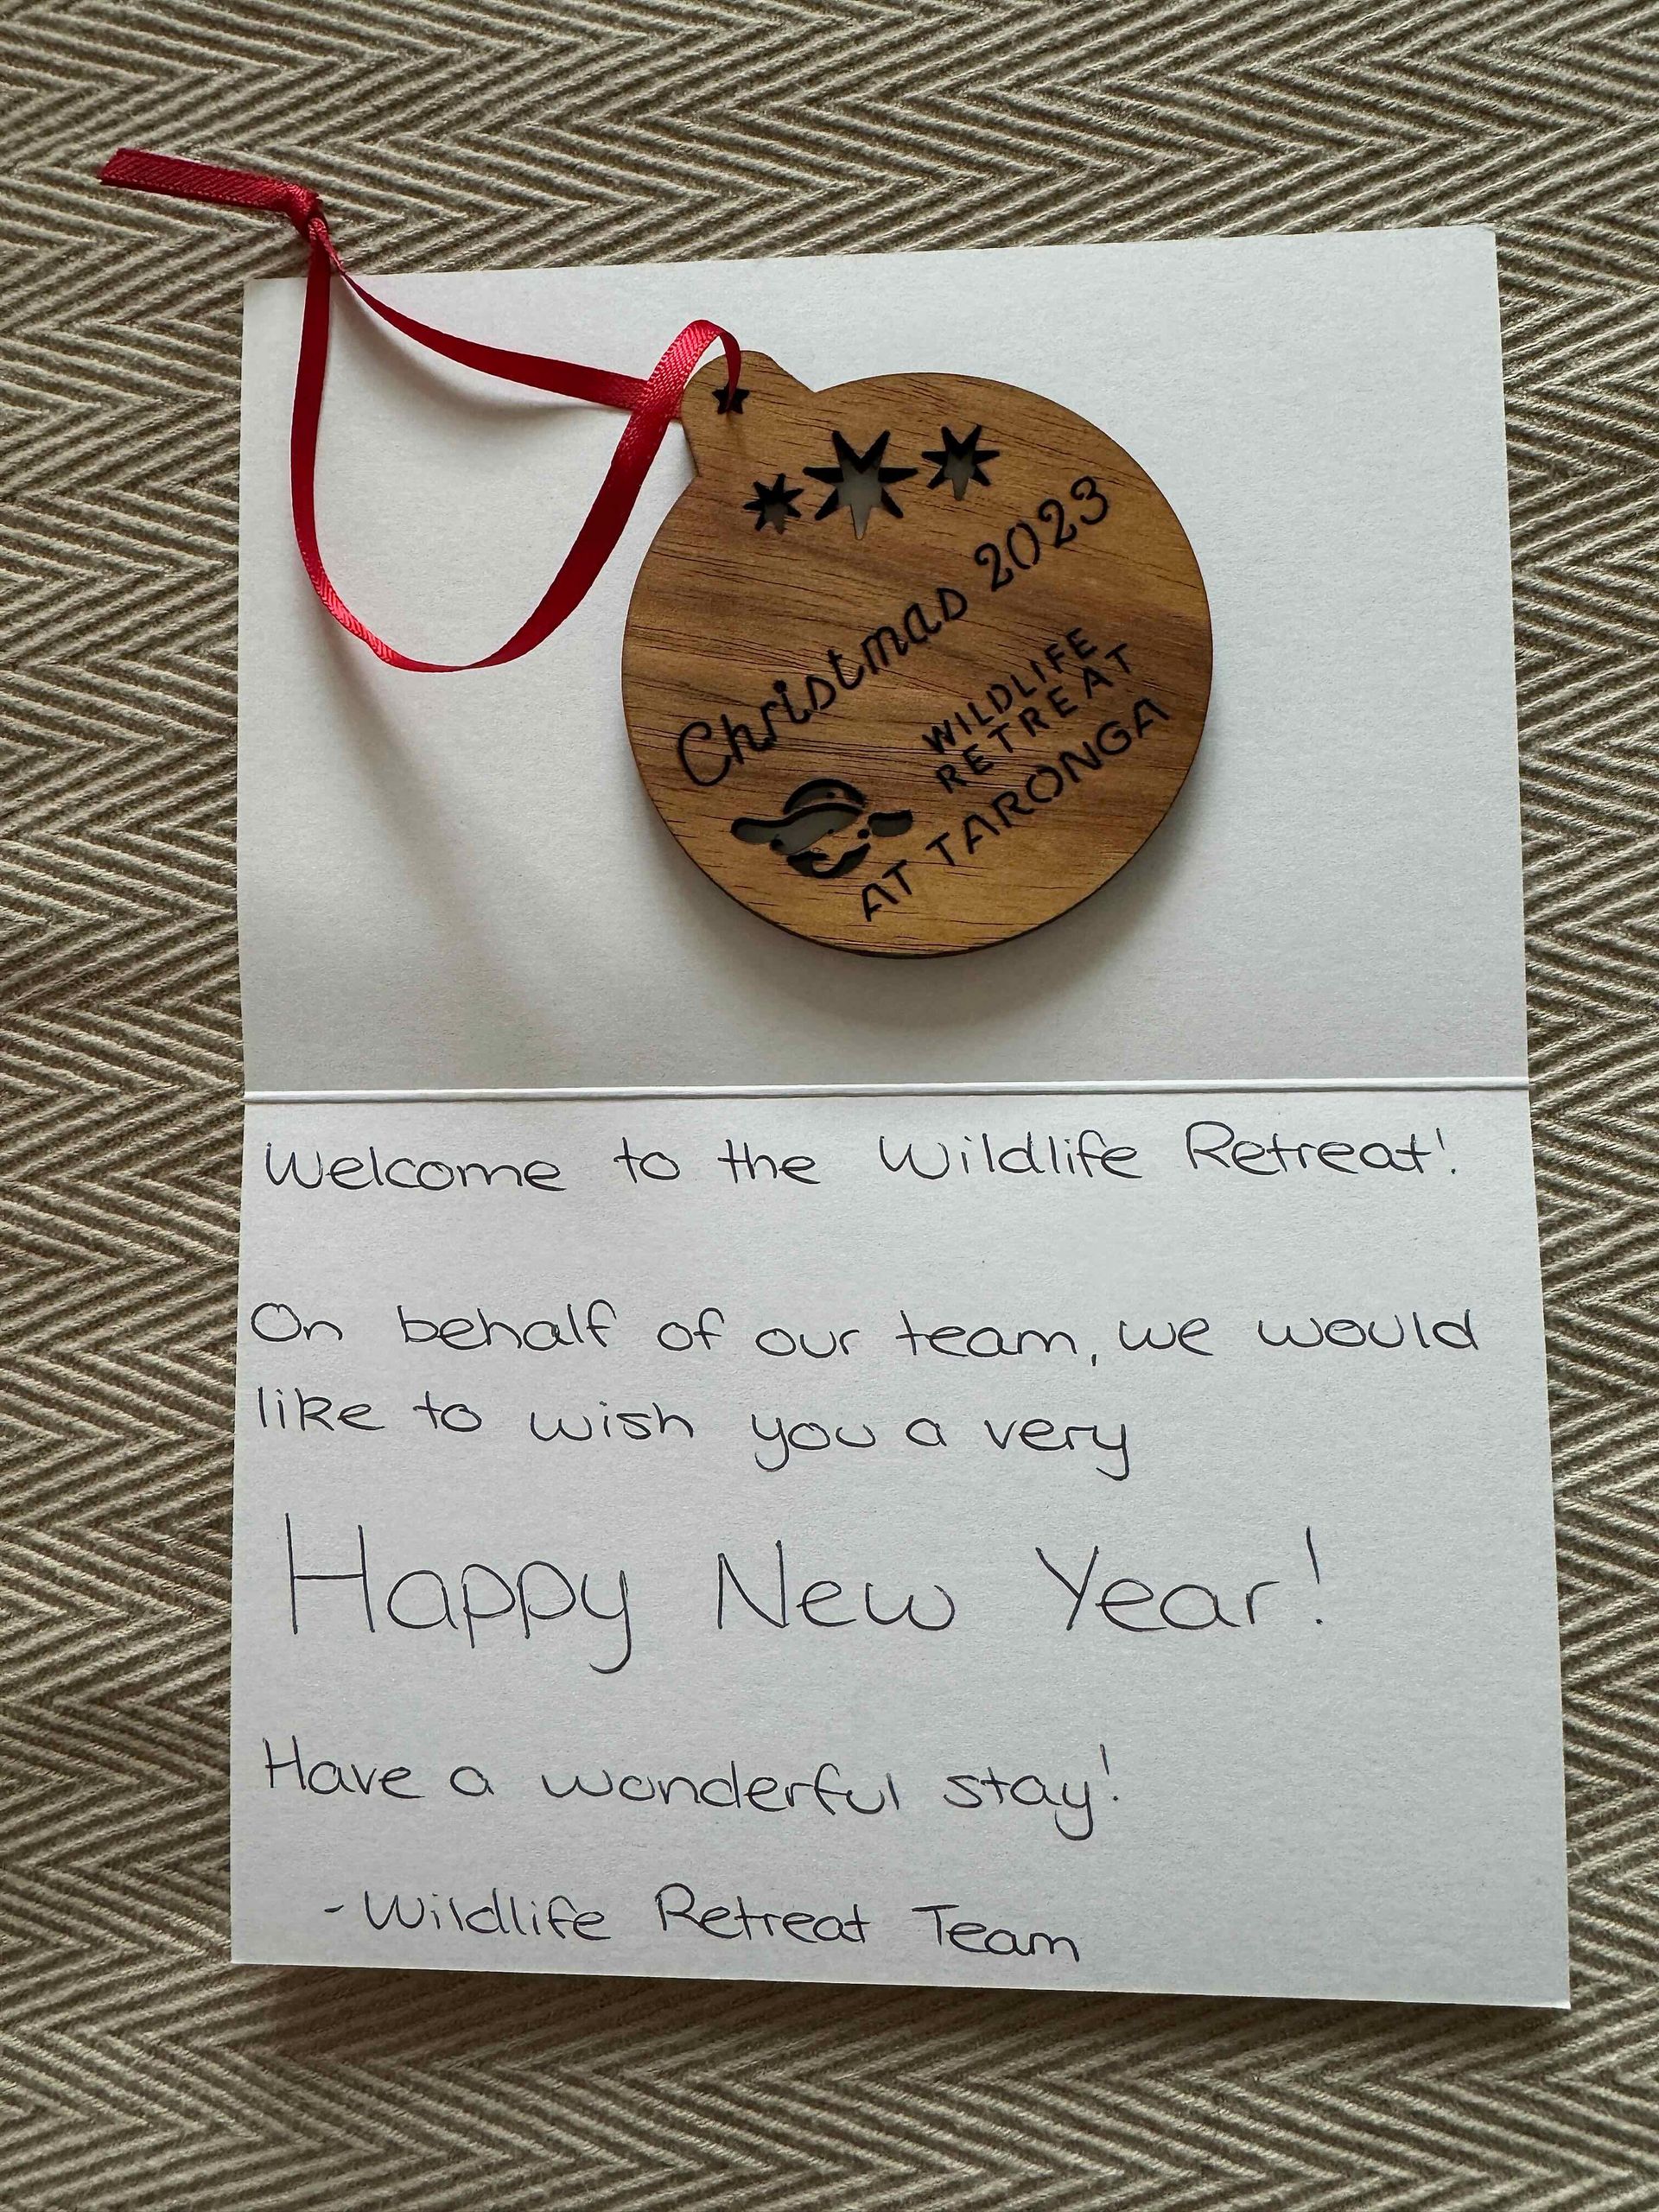 Christmas 2023
WILDLIFE
RETREAT
AT TARONGA
Welcome to the Wildlife Retreat!
On behalf of our team, we would
like to wish you a very
Happy New Year!
Have a wonderful stay!
- Wildlife Retreat Team